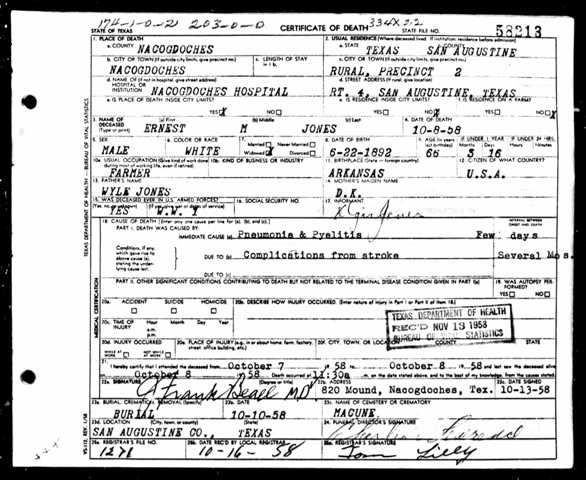 174-1-0-21 203-0-0 334X 2-2
STATE OF TEXAS CERTIFICATE OF DEATH STATE FILE NO. 58213
1. PLACE OF DEATH 2. USUAL RESIDENCE (Where deceased lived. If institution: residence before admission)
a. COUNTY NACOGDOCHES a. STATE TEXAS b. COUNTY SAN AUGUSTINE
b. CITY OR TOWN (If outside city limits, give precinct no.) c. LENGTH OF STAY in 1 b. c. CITY OR TOWN (If outside city limits, give precinct no.)
NACOGDOCHES RURAL, PRECINCT 2
d. NAME OF (If not in hospital, give street address) d. STREET ADDRESS (If rural, give location)
HOSPITAL OR INSTITUTION NACOGDOCHES HOSPITAL RT. 4, SAN AUGUSTINE, TEXAS
e. IS PLACE OF DEATH INSIDE CITY LIMITS? e. IS RESIDENCE INSIDE CITY LIMITS? f. IS RESIDENCE ON A FARM?
YES X NO YES NO X YES NO X
3. NAME OF DECEASED (Type or print) (a) First (b) Middle (c) Last 4. DATE OF DEATH
ERNEST M JONES 10-8-58
5. SEX 6. COLOR OR RACE 7. Married Never Married 8. DATE OF BIRTH 9. AGE (In years) IF UNDER 1 YEAR IF UNDER 24 HRS.
MALE WHITE Widowed X Divorced 6-22-1892 66 Months 3 Days 16 Hours Minutes
10a. USUAL OCCUPATION (Give kind of work done during most of working life, even if retired) 10b. KIND OF BUSINESS OR INDUSTRY 11. BIRTHPLACE (State or foreign country) 12. CITIZEN OF WHAT COUNTRY?
FARMER ARKANSAS U.S.A.
13. FATHER'S NAME 14. MOTHER'S MAIDEN NAME
WYLE JONES D.K.
15. WAS DECEASED EVER IN U.S. ARMED FORCES? 16. SOCIAL SECURITY NO. 17. INFORMANT
(Yes, no, or unknown) (If yes, give war or dates of service)
YES W.W. Jones
18. CAUSE OF DEATH [Enter only one cause per line for (a), (b), and (c).] INTERVAL BETWEEN ONSET AND DEATH
PART I. DEATH WAS CAUSED BY:
IMMEDIATE CAUSE (a) Pneumonia & Pyelitis Few days
Conditions, if any, which gave rise to above cause (a), stating the underlying cause last. DUE TO (b) Complications from stroke Several Mos.
DUE TO (c)
PART II. OTHER SIGNIFICANT CONDITIONS CONTRIBUTING TO DEATH BUT NOT RELATED TO THE TERMINAL DISEASE CONDITION GIVEN IN PART I(a) 19. WAS AUTOPSY PERFORMED?
YES NO
20a. ACCIDENT SUICIDE HOMICIDE 20b. DESCRIBE HOW INJURY OCCURRED. (Enter nature of injury in Part I or Part II of item 18.)
20c. TIME OF INJURY Hour Month Day Year
a.m.
p.m.
TEXAS DEPARTMENT OF HEALTH
REC'D NOV 13 1958
BUREAU OF VITAL STATISTICS
20d. INJURY OCCURRED 20e. PLACE OF INJURY (e.g., in or about home, farm, factory, street, office building, etc.) 20f. CITY, TOWN, OR LOCATION COUNTY STATE
WHILE AT WORK NOT WHILE AT WORK
21. I hereby certify that I attended the deceased from October 7 19 58 to October 8 19 58 and last saw the deceased alive
on October 8 19 58 Death occurred at 11:30a m. on the date stated above, and to the best of my knowledge, from the causes stated.
22a. SIGNATURE (Degree or title) 22b. ADDRESS 22c. DATE SIGNED
Frank M.D. 820 Mound, Nacogdoches, Tex. 10-13-58
23a. BURIAL, CREMATION, REMOVAL (Specify) 23b. DATE 23c. NAME OF CEMETERY OR CREMATORY
BURIAL 10-10-58 MACUNE
23d. LOCATION (City, town, or county) (State) 24. FUNERAL DIRECTOR'S SIGNATURE
SAN AUGUSTINE CO., TEXAS
25a. REGISTRAR'S FILE NO. 25b. DATE REC'D BY LOCAL REGISTRAR 25c. REGISTRAR'S SIGNATURE
1271 10-16-58 Tom Lilly
TEXAS DEPARTMENT OF HEALTH - BUREAU OF VITAL STATISTICS
MEDICAL CERTIFICATION